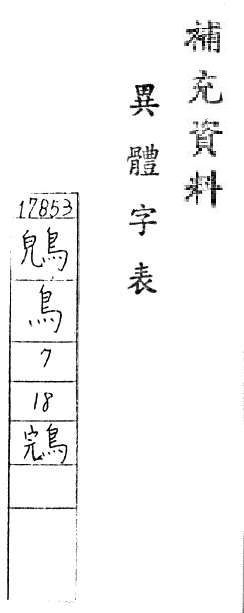 補充資料
異體字表
17853
鳥
7
18